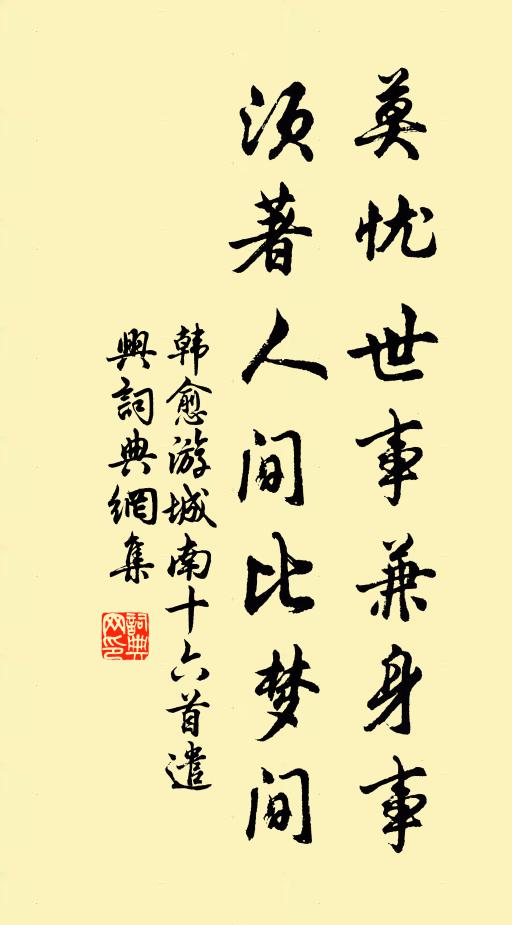 莫忧世事兼身事
须著人间比梦间
韩愈游城南十六首遣
興詞典網集
詞典
网印